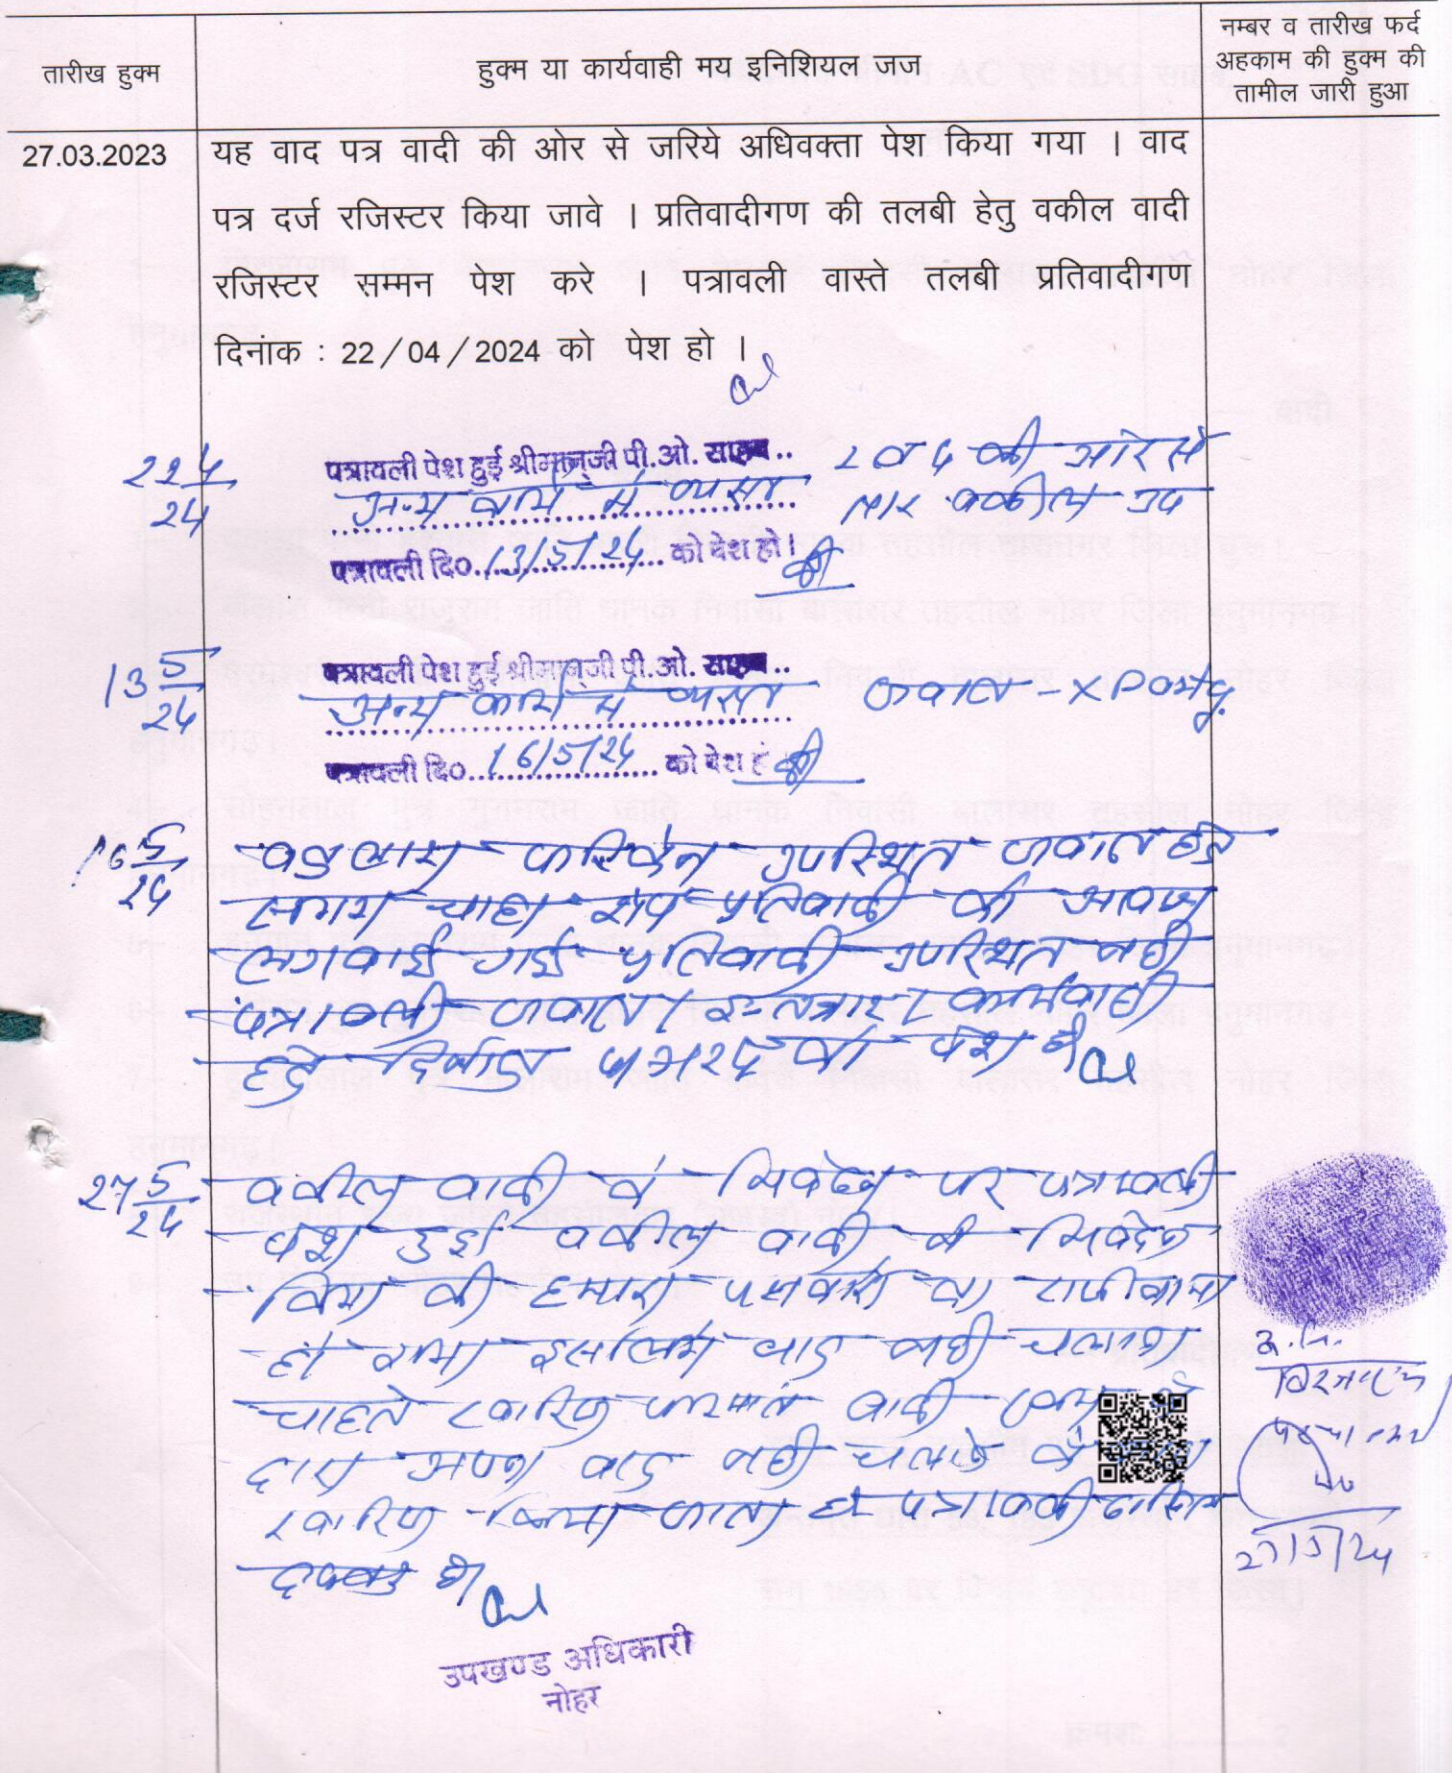 तारीख हुक्म
हुक्म या कार्यवाही मय इनिशियल जज
नम्बर व तारीख फर्द
अहकाम की हुक्म की
तामील जारी हुआ
27.03.2023
यह वाद पत्र वादी की ओर से जरिये अधिवक्ता पेश किया गया । वाद
पत्र दर्ज रजिस्टर किया जावे । प्रतिवादीगण की तलबी हेतु वकील वादी
रजिस्टर सम्मन पेश करे । पत्रावली वास्ते तलबी प्रतिवादीगण
दिनांक : 22/04/2024 को पेश हो ।
22 4/24
पत्रावली पेश हुई श्रीमान्जी पी.ओ. साहब.. 2 व 4 की ओर से
अन्य कार्य में व्यस्त वकील
पत्रावली दि०.13/5/24 को पेश हो।
13 5/24
पत्रावली पेश हुई श्रीमान्जी पी.ओ. साहब..
अन्य कार्य में व्यस्त जवाब
पत्रावली दि०.16/5/24 को पेश हो
16 5/24
उपस्थित जवाब हेतु
समय चाहा शेष प्रतिवादी की आवाज
लगवाई गई प्रतिवादी उपस्थित नही
पत्रावली जवाब / इन्तजार / कार्यवाही
हेतु दिनांक को पेश हो
27 5/24
वकील वादी के निवेदन पर पत्रावली
पेश हुई वकील वादी ने निवेदन
किया की हमारा पक्षकारो का राजीनामा
हो गया इसलिये वाद नही चलाना
चाहते खारिज फरमावे वादी
द्वारा अपना वाद नही चलाने
खारिज किया जाता है पत्रावली दाखिल
दफ्तर हो
उपखण्ड अधिकारी
नोहर
27/5/24